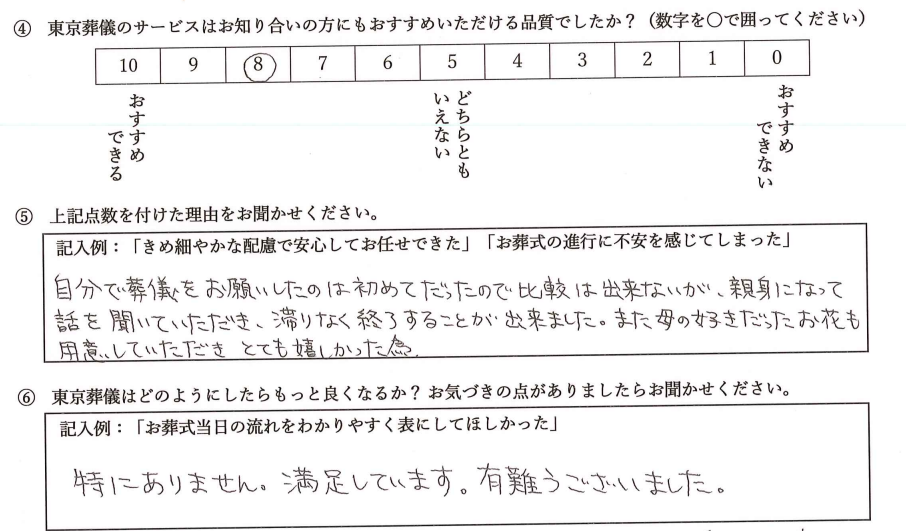 ④ 東京葬儀のサービスはお知り合いの方にもおすすめいただける品質でしたか?(数字を○で囲ってください)
10 9 8 7 6 5 4 3 2 1 0
おすすめできる
どちらともいえない
おすすめできない
⑤ 上記点数を付けた理由をお聞かせください。
記入例:「きめ細やかな配慮で安心してお任せできた」「お葬式の進行に不安を感じてしまった」
自分で葬儀をお願いしたのは初めてだったので比較は出来ないが、親身になって
話を聞いていただき、滞りなく終了することが出来ました。また母の好きだったお花も
用意していただきとても嬉しかった為。
⑥ 東京葬儀はどのようにしたらもっと良くなるか? お気づきの点がありましたらお聞かせください。
記入例:「お葬式当日の流れをわかりやすく表にしてほしかった」
特にありません。満足しています。有難うございました。